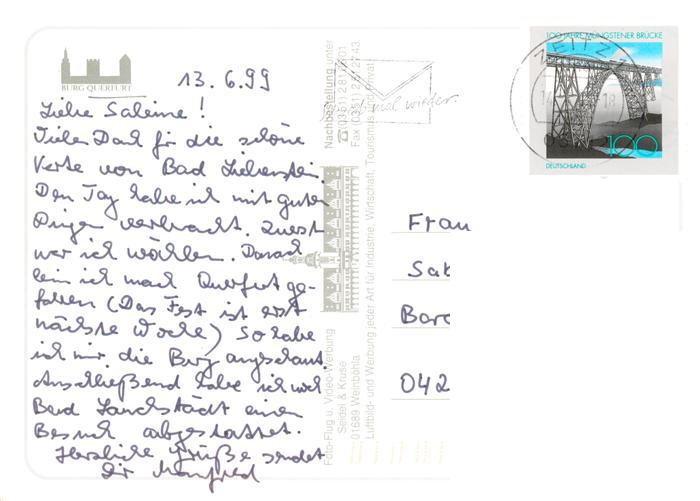 BURG QUERFURT
13.6.99
Liebe Sabine!
Vielen Dank für die schöne
Karte von Bad Liebenstein.
Den Tag habe ich mit guten
Dingen verbracht. Zuerst
war ich wählen. Danach
bin ich nach Querfurt ge-
fahren (Das Fest ist erst
nächste Woche) So habe
ich mir die Burg angeschaut.
Anschließend habe ich noch
Bad Lauchstädt einen
Besuch abgestattet.
Herzliche Grüße sendet
Dir Manfred
Nachbestellung unter
Foto-Flug u. Video-Werbung
Seidel & Kruse
01689 Weinböhla
Luftbild- und Werbung jeder Art für Industrie, Wirtschaft, Tourismus und Privat
mal wieder.
ZEITZ
18
100 JAHRE MÜNGSTENER BRÜCKE
100
DEUTSCHLAND
Frau
Sab
Baro
042